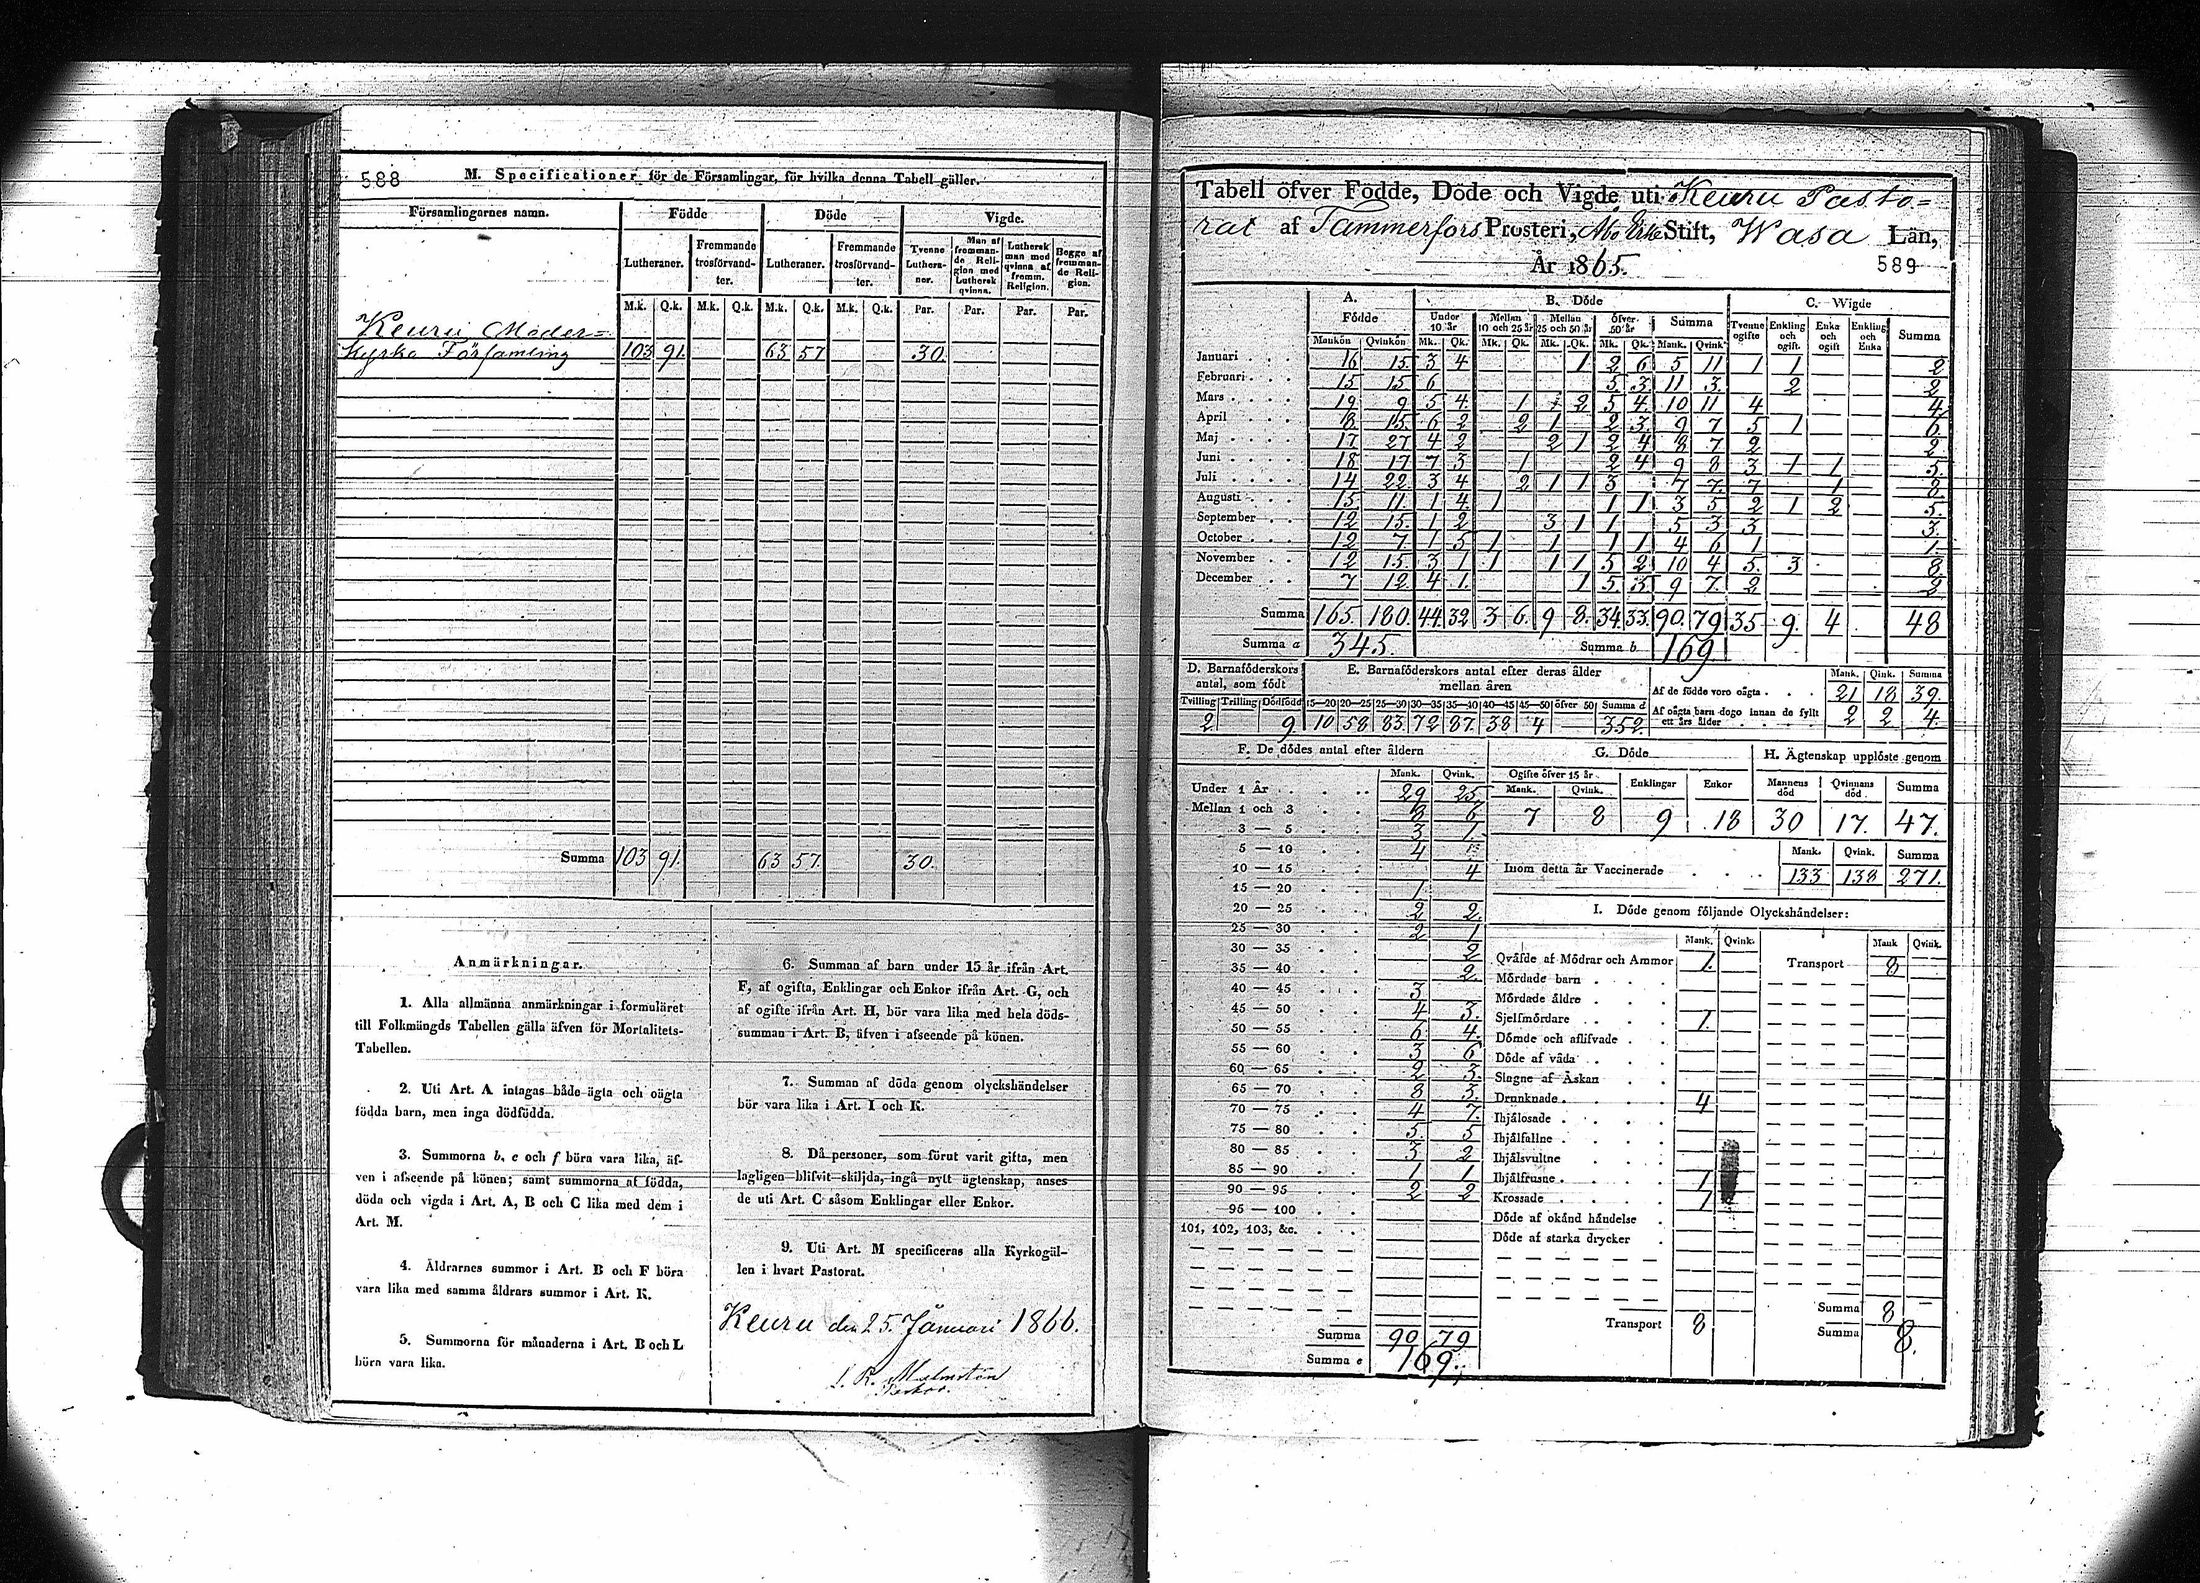 588
M. Specificationer för de Församlingar, för hvilka denna Tabell gäller.
Församlingarnes namn. Födde Döde Vigde.
Lutheraner. Fremmande trosförvandter. Lutheraner. Fremmande trosförvandter. Tvenne Lutheraner. Man af fremmande Religion med Luthersk qvinna. Luthersk man med qvinna af fremm. Religion. Begge af fremmande Religion.
M.k. Q.k. M.k. Q.k. M.k. Q.k. M.k. Q.k. Par. Par. Par. Par.
Keuru Moder=
kyrko Församling 103 91. 63 57 30.
Summa 103 91. 63 57. 30.
Anmärkningar.
1. Alla allmänna anmärkningar i formuläret
till Folkmängds Tabellen gälla äfven för Mortalitets-
Tabellen.
2. Uti Art. A intagas både ägta och oägta
födda barn, men inga dödfödda.
3. Summorna b, e och f böra vara lika, äf-
ven i afseende på könen; samt summorna af födda,
döda och vigda i Art. A, B och C lika med dem i
Art. M.
4. Äldrarnes summor i Art. B och F böra
vara lika med samma åldrars summor i Art. K.
5. Summorna för månaderna i Art. B och L
böra vara lika.
6. Summan af barn under 15 år ifrån Art.
F, af ogifta, Enklingar och Enkor ifrån Art. G, och
af ogifte ifrån Art. H, bör vara lika med hela döds-
summan i Art. B, äfven i afseende på könen.
7. Summan af döda genom olyckshändelser
bör vara lika i Art. I och K.
8. Då personer, som förut varit gifta, men
lagligen blifvit skiljda, ingå nytt ägtenskap, anses
de uti Art. C såsom Enklingar eller Enkor.
9. Uti Art. M specificeras alla Kyrkogäl-
len i hvart Pastorat.
Keuru den 25. Januari 1866.
Tabell öfver Födde, Döde och Vigde uti Keuru Pasto=
rat af Tammerfors Prosteri, Åbo Erke Stift, Wasa Län,
År 1865.
589
A. Födde B. Döde C. Wigde
Under 10 år Mellan 10 och 25 år Mellan 25 och 50 år Öfver 50 år Summa Tvenne ogifte Enkling och ogift. Enka och ogift Enkling och Enka Summa
Mankön Qvinkön Mk. Qk. Mk. Qk. Mk. Qk. Mk. Qk. Mank. Qvink.
Januari 16 15. 3 4 1 2 6 5 11 1 1 2
Februari 15 15 6 5. 3. 11 3. 2 2
Mars 19 9 5 4. 1 2 5 4. 10 11 4 4
April 8 15. 6 2 2 1 2 3. 9 7 5 1 6
Maj 17 27 4 2 2 1 2 4 8 7 2 2
Juni 18 17 7 3 1 2 4 9 8 3 1 1 5.
Juli 14 22. 3 4 2 1 1 3 7 7. 7 1 8
Augusti 15 11. 1 4. 1 1 1 3 5 2 1 2 5.
September 12 15. 1 2 3 1 1 5 3 3 3.
October 12 7. 1 5 1 1 1 1 4 6 1 1.
November 12 15. 3 1 1 1 1 5 2 10 4 5. 3 8
December 7 12. 4 1. 1 5. 3. 9 7. 2 2
Summa 165. 180. 44. 32 3 6. 9 8. 34. 33. 90. 79. 35 9. 4 48
Summa a 345. Summa b 169
D. Barnaföderskors antal, som födt
Tvilling Trilling Dödfödd
2 9
E. Barnaföderskors antal efter deras ålder mellan åren
15—20 20—25 25—30 30—35 35—40 40—45 45—50 öfver 50 Summa d
10 58 83. 72 87. 38 4 352.
Mank. Qink. Summa
Af de födde voro oägta 21 18 39.
Af oägta barn dogo innan de fyllt ett års ålder 2 2 4.
F. De dödes antal efter åldern
Mank. Qvink.
Under 1 År 29 25.
Mellan 1 och 3 8 6
3 — 5 3 1.
5 — 10 4
10 — 15 4
15 — 20 1
20 — 25 2 2.
25 — 30 2 1
30 — 35 2
35 — 40 2.
40 — 45 3
45 — 50 4 3.
50 — 55 6 4.
55 — 60 3 6
60 — 65 2 3.
65 — 70 8 3.
70 — 75 4 7.
75 — 80 5. 5
80 — 85 3 2
85 — 90 1 1
90 — 95 2 2
95 — 100
101, 102, 103, &c.
Summa 90 79
Summa e 169.
G. Döde
Ogifte öfver 15 år Enklingar Enkor
Mank. Qvink.
7 8 9 18
H. Ägtenskap upplöste genom
Mannens död Qvinnans död. Summa
30 17. 47.
Mank. Qvink. Summa
Inom detta år Vaccinerade 133 138 271.
I. Döde genom följande Olyckshändelser:
Mank. Qvink. Mank Qvink.
Qväfde af Mödrar och Ammor 1. Transport 8
Mördade barn
Mördade äldre
Sjelfmördare 1.
Dömde och aflifvade
Döde af våda
Slagne af Åskan
Drunknade 4
Ihjälosade
Ihjälfallne
Ihjälsvultne
Ihjälfrusne 1
Krossade 1
Döde af okänd händelse
Döde af starka drycker
Transport 8
Summa 8
Summa 8.